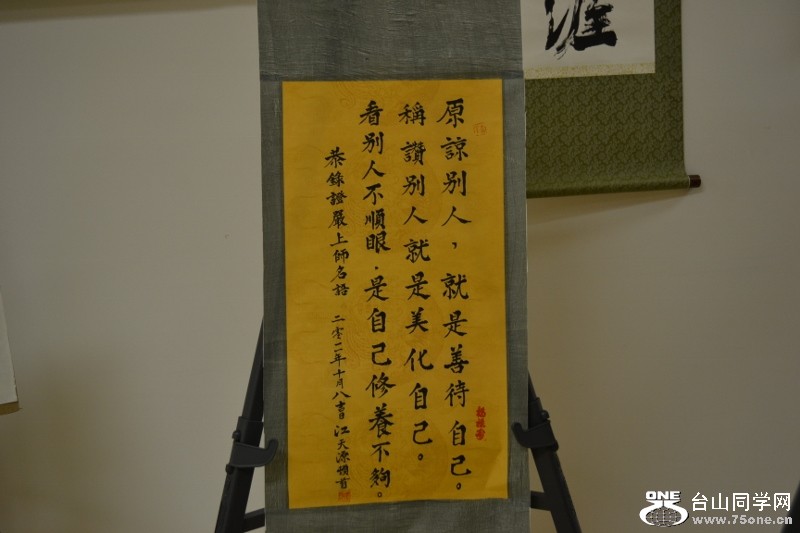 原諒別人，就是善待自己。
稱讚別人就是美化自己。
看別人不順眼．是自己修養不夠。
恭錄證嚴上師名語 二零一二年十月八吉日 江天源頓首
涯
ONE 台山同学网
www.75one.cn